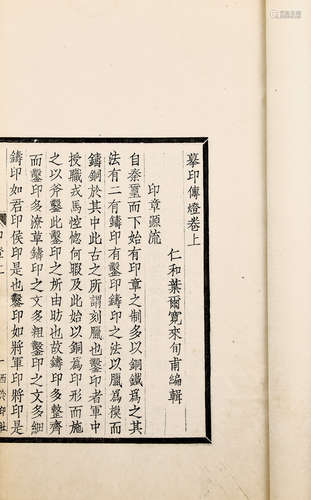 摹印傳燈卷上
仁和葉爾寬來旬甫編輯
印章源流
自秦璽而下始有印章之制多以銅鐵爲之其
法有二有鑄印有鑿印鑄印之法以臘爲模而
鑄銅於其中此古之所謂刻臘也鑿印者軍中
授職戎馬倥偬何暇及此始以銅爲印形而施
之以斧鑿此鑿印之所由昉也故鑄印多整齊
而鑿印多潦草鑄印之文多粗鑿印之文多細
鑄印如君印侯印是也鑿印如將軍印將印是
西泠印社